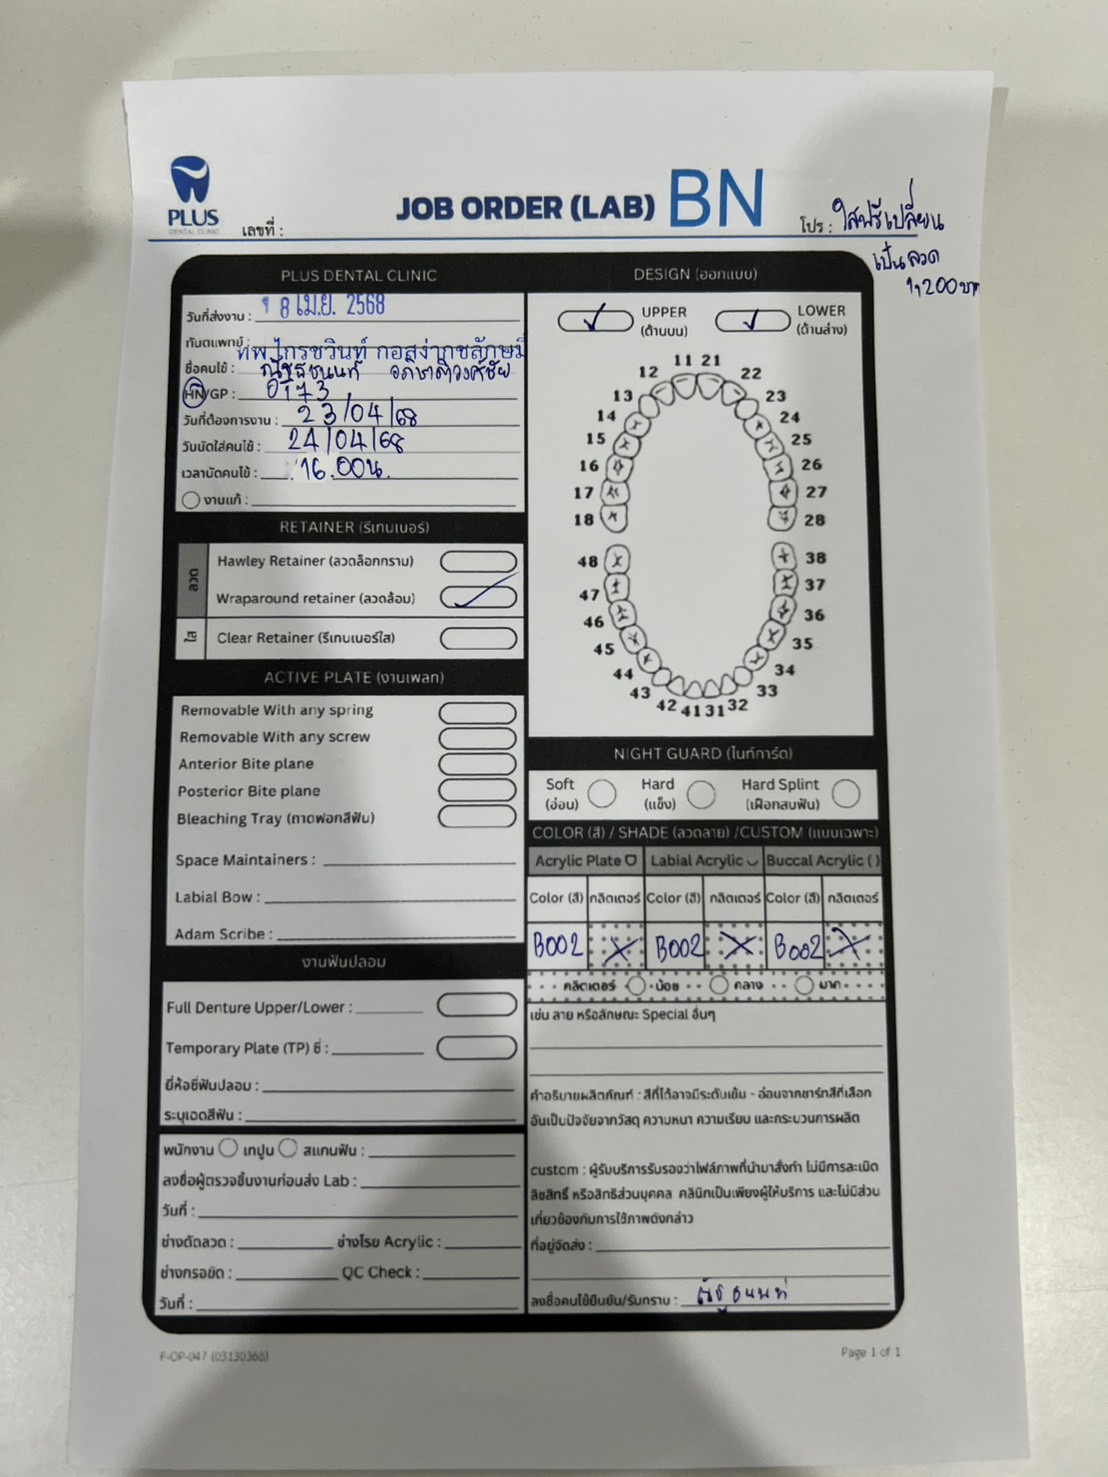 PLUS
DENTAL CLINIC
เลขที่ :
JOB ORDER (LAB) BN
โปร : ใสฟรีเปลี่ยน
เป็นลวด
1,200บาท
PLUS DENTAL CLINIC
วันที่ส่งงาน : 8 เม.ย. 2568
ทันตแพทย์ :
ชื่อคนไข้ :
HN/GP : 0173
วันที่ต้องการงาน : 23/04/68
วันนัดใส่คนไข้ : 24/04/68
เวลานัดคนไข้ : 16.00น.
งานแก้ :
RETAINER (รีเทนเนอร์)
ลวด
Hawley Retainer (ลวดล็อกกราม)
Wraparound retainer (ลวดล้อม)
ใส
Clear Retainer (รีเทนเนอร์ใส)
ACTIVE PLATE (งานเพลท)
Removable With any spring
Removable With any screw
Anterior Bite plane
Posterior Bite plane
Bleaching Tray (ถาดฟอกสีฟัน)
Space Maintainers :
Labial Bow :
Adam Scribe :
งานฟันปลอม
Full Denture Upper/Lower :
Temporary Plate (TP) ซี่ :
ยี่ห้อซี่ฟันปลอม :
ระบุเฉดสีฟัน :
พนักงาน เทปูน สแกนฟัน :
ลงชื่อผู้ตรวจชิ้นงานก่อนส่ง Lab :
วันที่ :
ช่างดัดลวด : ช่างโรย Acrylic :
ช่างกรอขัด : QC Check :
วันที่ :
DESIGN (ออกแบบ)
UPPER
(ด้านบน)
LOWER
(ด้านล่าง)
11 21
12 22
13 23
14 24
15 25
16 26
17 27
18 28
48 38
47 37
46 36
45 35
44 34
43 33
42 41 31 32
NIGHT GUARD (ไนท์การ์ด)
Soft
(อ่อน)
Hard
(แข็ง)
Hard Splint
(เฝือกสบฟัน)
COLOR (สี) / SHADE (ลวดลาย) /CUSTOM (แบบเฉพาะ)
Acrylic Plate Labial Acrylic Buccal Acrylic ( )
Color (สี) กลิตเตอร์ Color (สี) กลิตเตอร์ Color (สี) กลิตเตอร์
B002 X B002 X B002 X
กลิตเตอร์ น้อย กลาง มาก
เช่น ลาย หรือลักษณะ Special อื่นๆ
คำอธิบายผลิตภัณฑ์ : สีที่ได้อาจมีระดับเข้ม - อ่อนจากชาร์ทสีที่เลือก
อันเป็นปัจจัยจากวัสดุ ความหนา ความเรียบ และกระบวนการผลิต
custom : ผู้รับบริการรับรองว่าไฟล์ภาพที่นำมาสั่งทำ ไม่มีการละเมิด
ลิขสิทธิ์ หรือสิทธิส่วนบุคคล คลินิกเป็นเพียงผู้ให้บริการ และไม่มีส่วน
เกี่ยวข้องกับการใช้ภาพดังกล่าว
ที่อยู่จัดส่ง :
ลงชื่อคนไข้ยืนยัน/รับทราบ :
F-OP-047 (03130368)
Page 1 of 1